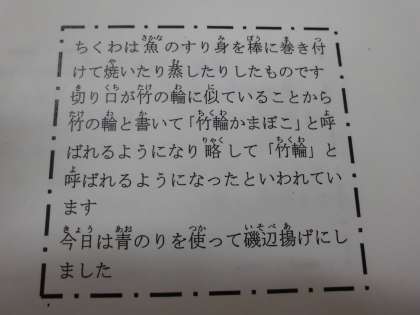 ちくわは魚のすり身を棒に巻き付
けて焼いたり蒸したりしたものです
切り口が竹の輪に似ていることから
竹の輪と書いて「竹輪かまぼこ」と呼
ばれるようになり略して「竹輪」と
呼ばれるようになったといわれてい
ます
今日は青のりを使って磯辺揚げにし
ました